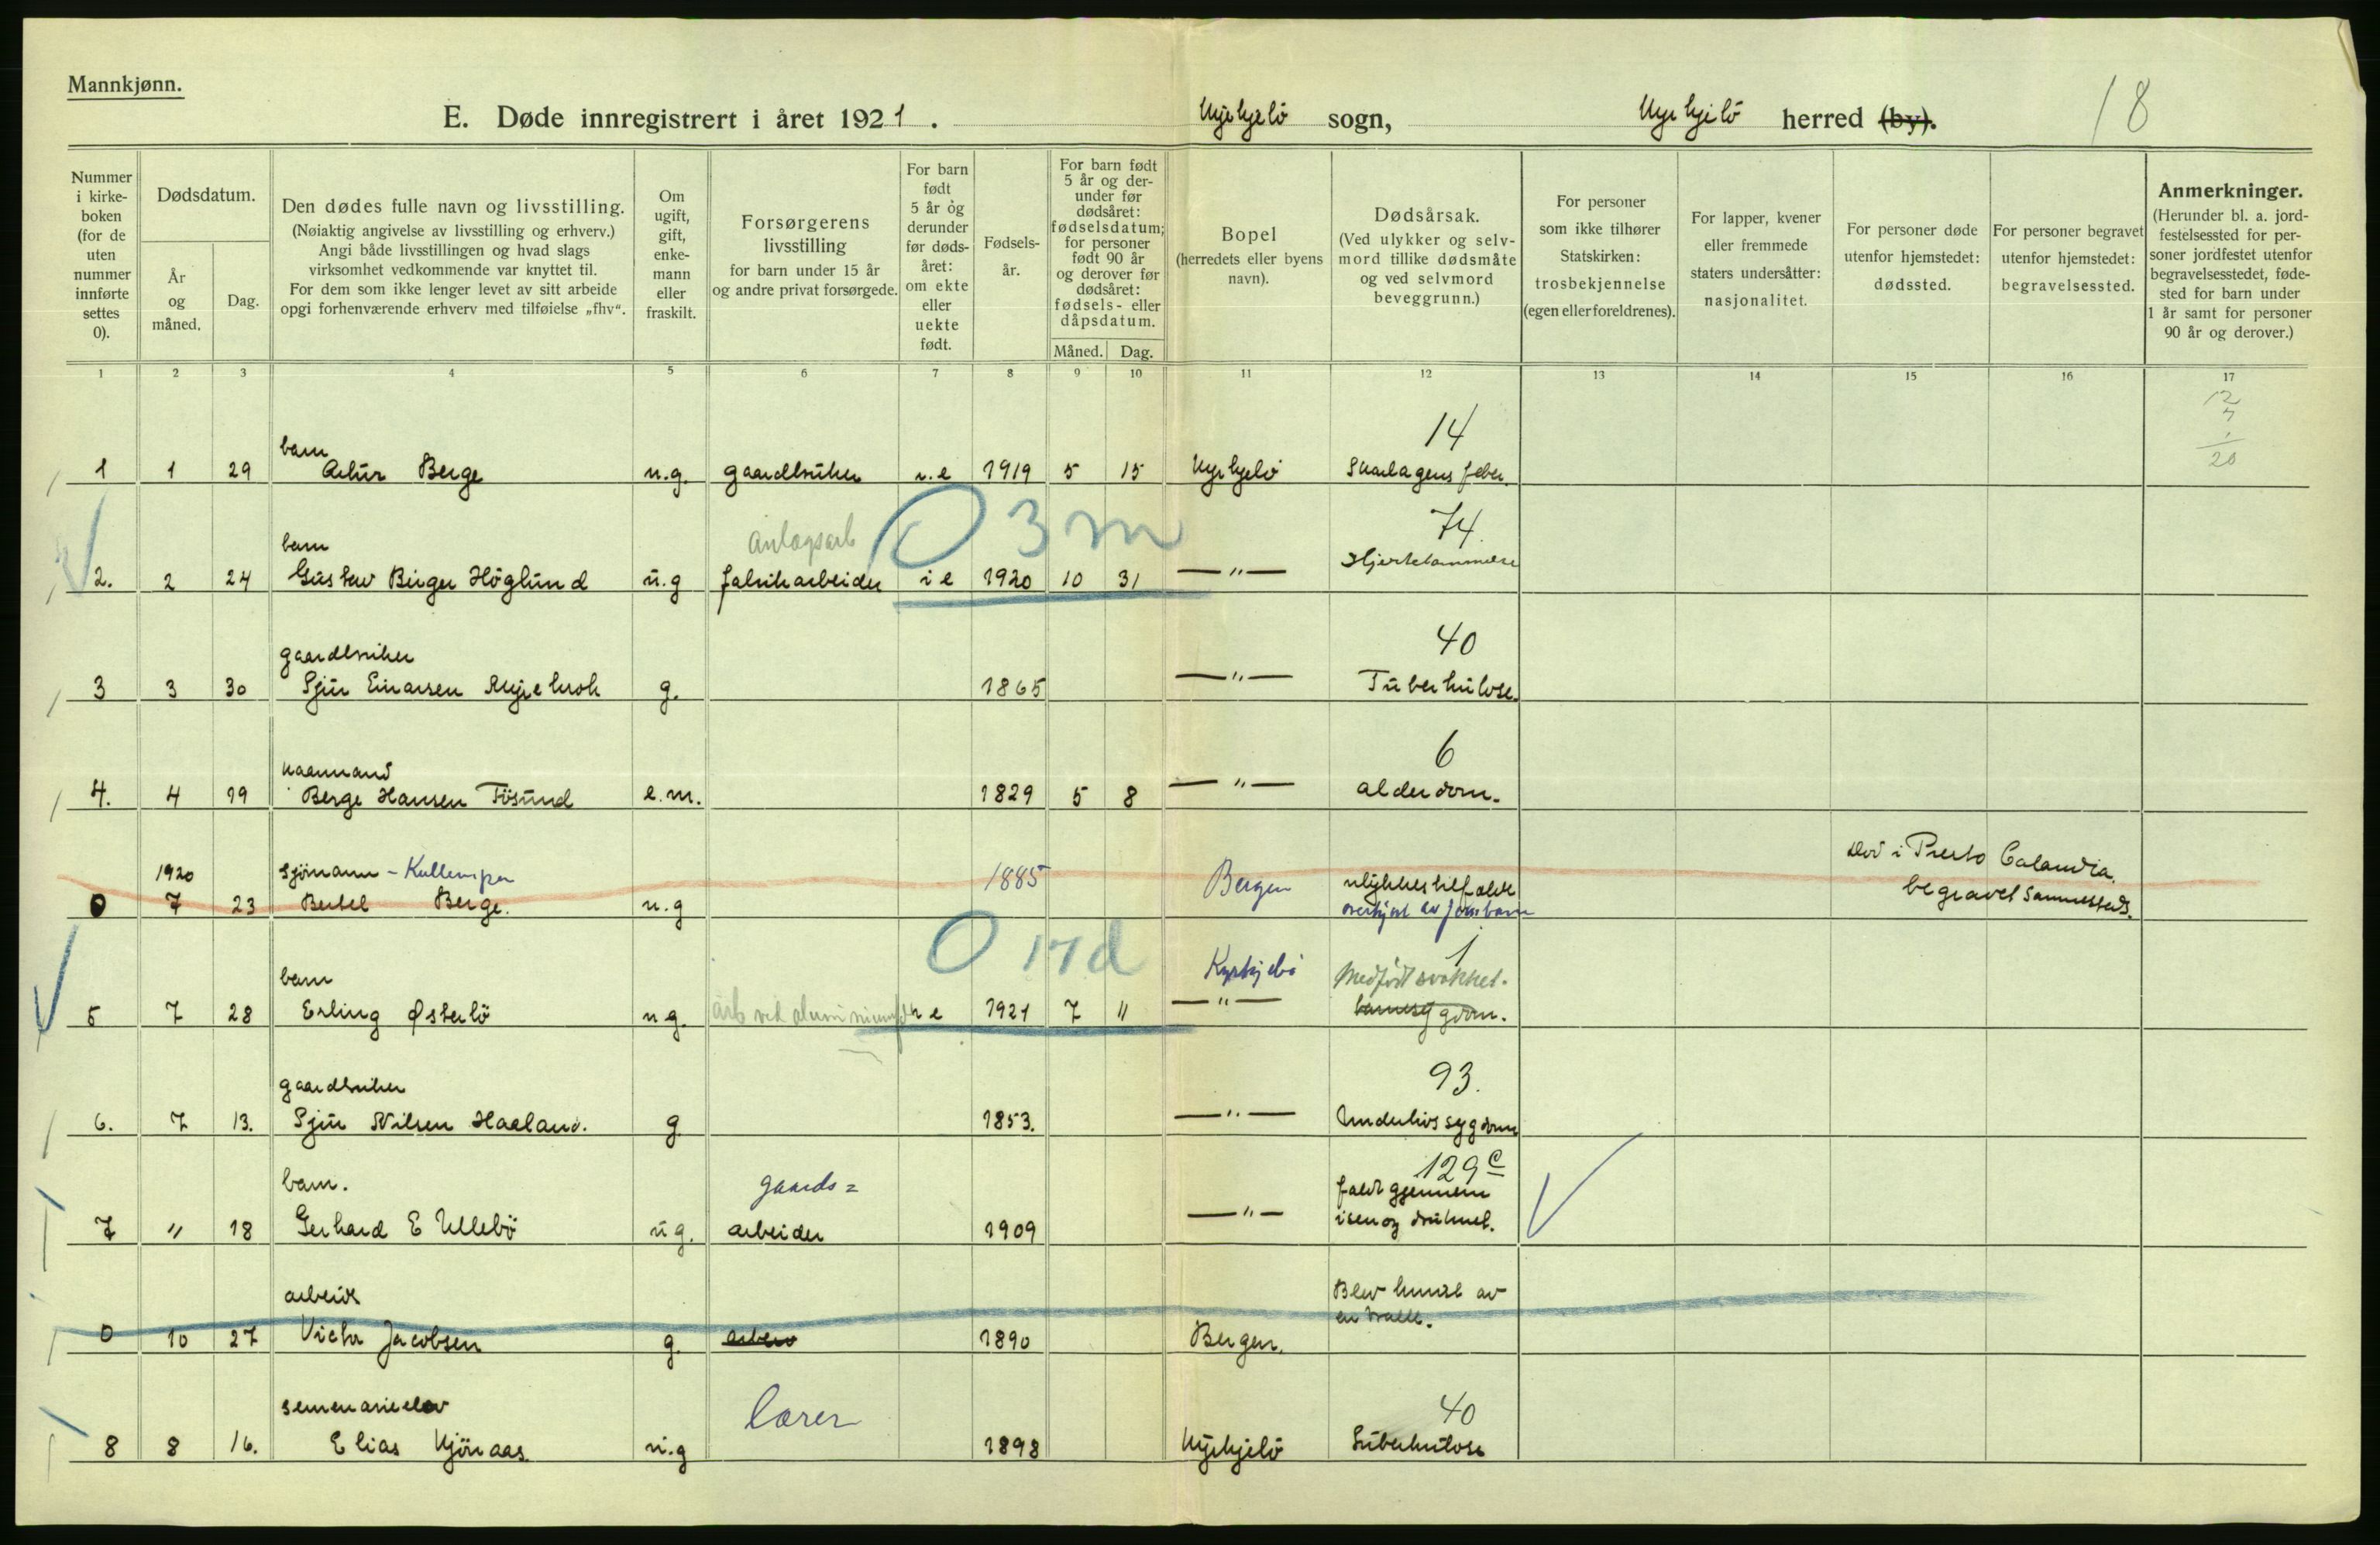 Mannkjønn.
E. Døde innregistrert i året 1921.
Kyrkjebö sogn,
Kyrkjebö herred (by).
18
Nummer i kirkeboken (for de uten nummer innførte settes 0).
Dødsdatum.
År og måned.
Dag.
Den dødes fulle navn og livsstilling.
(Nøiaktig angivelse av livsstilling og erhverv.)
Angi både livsstillingen og hvad slags
virksomhet vedkommende var knyttet til.
For dem som ikke lenger levet av sitt arbeide
opgi forhenværende erhverv med tilføielse „fhv“.
Om ugift, gift, enkemann eller fraskilt.
Forsørgerens livsstilling
for barn under 15 år
og andre privat forsørgede.
For barn født 5 år og derunder før dødsåret: om ekte eller uekte født.
Fødselsår.
For barn født 5 år og derunder før dødsåret: fødselsdatum; for personer født 90 år og derover før dødsåret: fødsels- eller dåpsdatum.
Måned.
Dag.
Bopel
(herredets eller byens navn).
Dødsårsak.
(Ved ulykker og selvmord tillike dødsmåte og ved selvmord beveggrunn.)
For personer som ikke tilhører Statskirken: trosbekjennelse (egen eller foreldrenes).
For lapper, kvener eller fremmede staters undersåtter: nasjonalitet.
For personer døde utenfor hjemstedet: dødssted.
For personer begravet utenfor hjemstedet: begravelsessted.
Anmerkninger.
(Herunder bl. a. jordfestelsessted for personer jordfestet utenfor begravelsesstedet, fødested for barn under 1 år samt for personer 90 år og derover.)
1 2 3 4 5 6 7 8 9 10 11 12 13 14 15 16 17
12
7
1
20
barn 14
1 1 29 Artur Berge u.g. gaardbruker u.e 1919 5 15 Kyrkjebö Skarlagens feber.
O 3 m
barn anlægsarb 74.
2. 2 24 Gustav Birger Höglund u.g fabrikarbeider i e 1920 10 31 —"— Hjertelammelse
gaardbruker 40
3 3 30 Sjur Einarsen Myrekrok g. 1865 —"— Tuberkulose.
kaarmand 6
4. 4 19 Berge Hansen Tösund e.m. 1829 5 8 —"— alderdom.
1920 sjömann - Kullemper ulykkestilfælde död i Puerto Calandia.
0 7 23 Bertel Berge. u.g 1885 Bergen overkjørt av jernbane begravet sammesteds.
O 17 d
barn Kyrkjebö 1 Medfödt svakhet.
5 7 28 Erling Østerbö u g. arb ved aluminiumfabr e 1921 7 11 —"— barnesygdom.
gaardbruker 93.
6. 7 13. Sjur Nilsen Haaland. g. 1853. —"— Underlivssygdom
barn. gaards= 129 c faldt gjennem
7 " 18 Gerhard E Ullebö u g. arbeider 1909 —"— isen og druknet.
arbeid Blev knust av
0 10 27 Victor Jacobsen g. arbeid 1890 Bergen. en tralle.
semenarieelev lærer 40
8 8 16. Elias Kjöraas. u.g 1898 Kyrkjebö Tuberkulose